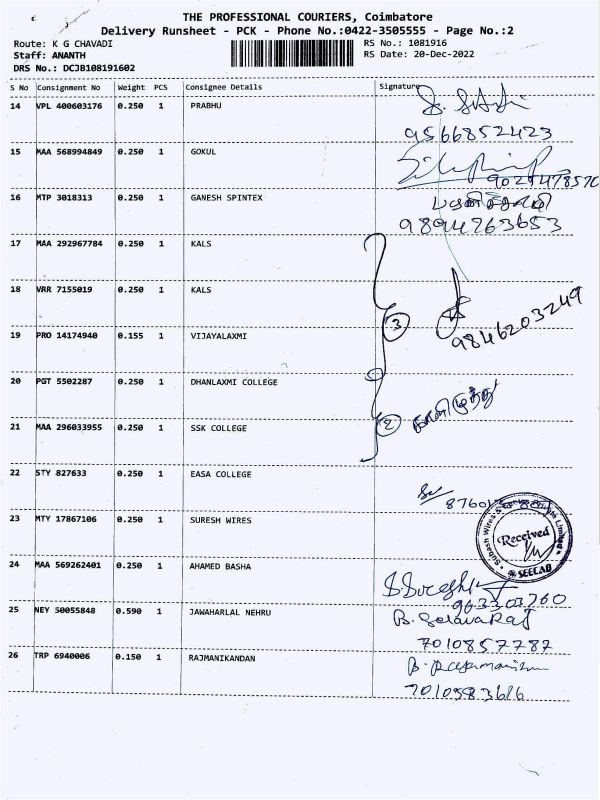 THE PROFESSIONAL COURIERS, Coimbatore
Delivery Runsheet - PCK - Phone No.:0422-3505555 - Page No.:2
Route: K G CHAVADI
RS No.: 1081916
Staff: ANANTH
RS Date: 20-Dec-2022
DRS No.: DCJB108191602
S No Consignment No Weight PCS Consignee Details Signature
14 VPL 400603176 0.250 1 PRABHU
9566852423
15 MAA 568994849 0.250 1 GOKUL
16 MTP 3018313 0.250 1 GANESH SPINTEX
9894763653
17 MAA 292967784 0.250 1 KALS
18 VRR 7155019 0.250 1 KALS
3
9846203249
19 PRO 14174940 0.155 1 VIJAYALAXMI
20 PGT 5502287 0.250 1 DHANLAXMI COLLEGE
21 MAA 296033955 0.250 1 SSK COLLEGE
2
22 STY 827633 0.250 1 EASA COLLEGE
23 MTY 17867106 0.250 1 SURESH WIRES
Received
SEECAB
24 MAA 569262401 0.250 1 AHAMED BASHA
S. Suresh
9633303760
25 NEY 50055848 0.590 1 JAWAHARLAL NEHRU
B. Saravaraj
7010857787
26 TRP 6940006 0.150 1 RAJMANIKANDAN